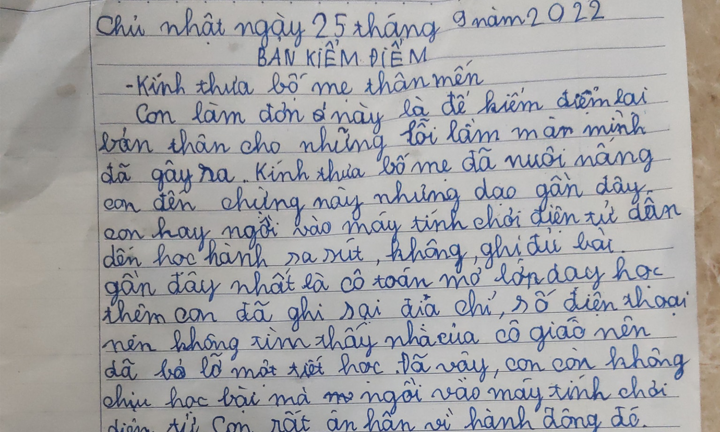 Chủ nhật ngày 25 tháng 9 năm 2022
BẢN KIỂM ĐIỂM
-Kính thưa bố mẹ thân mến
Con làm đơn này là để kiểm điểm lại
bản thân cho những lỗi lầm mà mình
đã gây ra. Kính thưa bố mẹ đã nuôi nấng
con đến chừng này nhưng dạo gần đây
con hay ngồi vào máy tính chơi điện tử dẫn
đến học hành sa sút, không, ghi đủ bài.
gần đây nhất là cô toán mở lớp dạy học
thêm con đã ghi sai địa chỉ, số điện thoại
nên không tìm thấy nhà của cô giáo nên
đã bỏ lỡ một tiết học. Đã vậy, con còn không
chịu học bài mà ngồi vào máy tính chơi
điện tử. Con rất ân hận vì hành động đó.